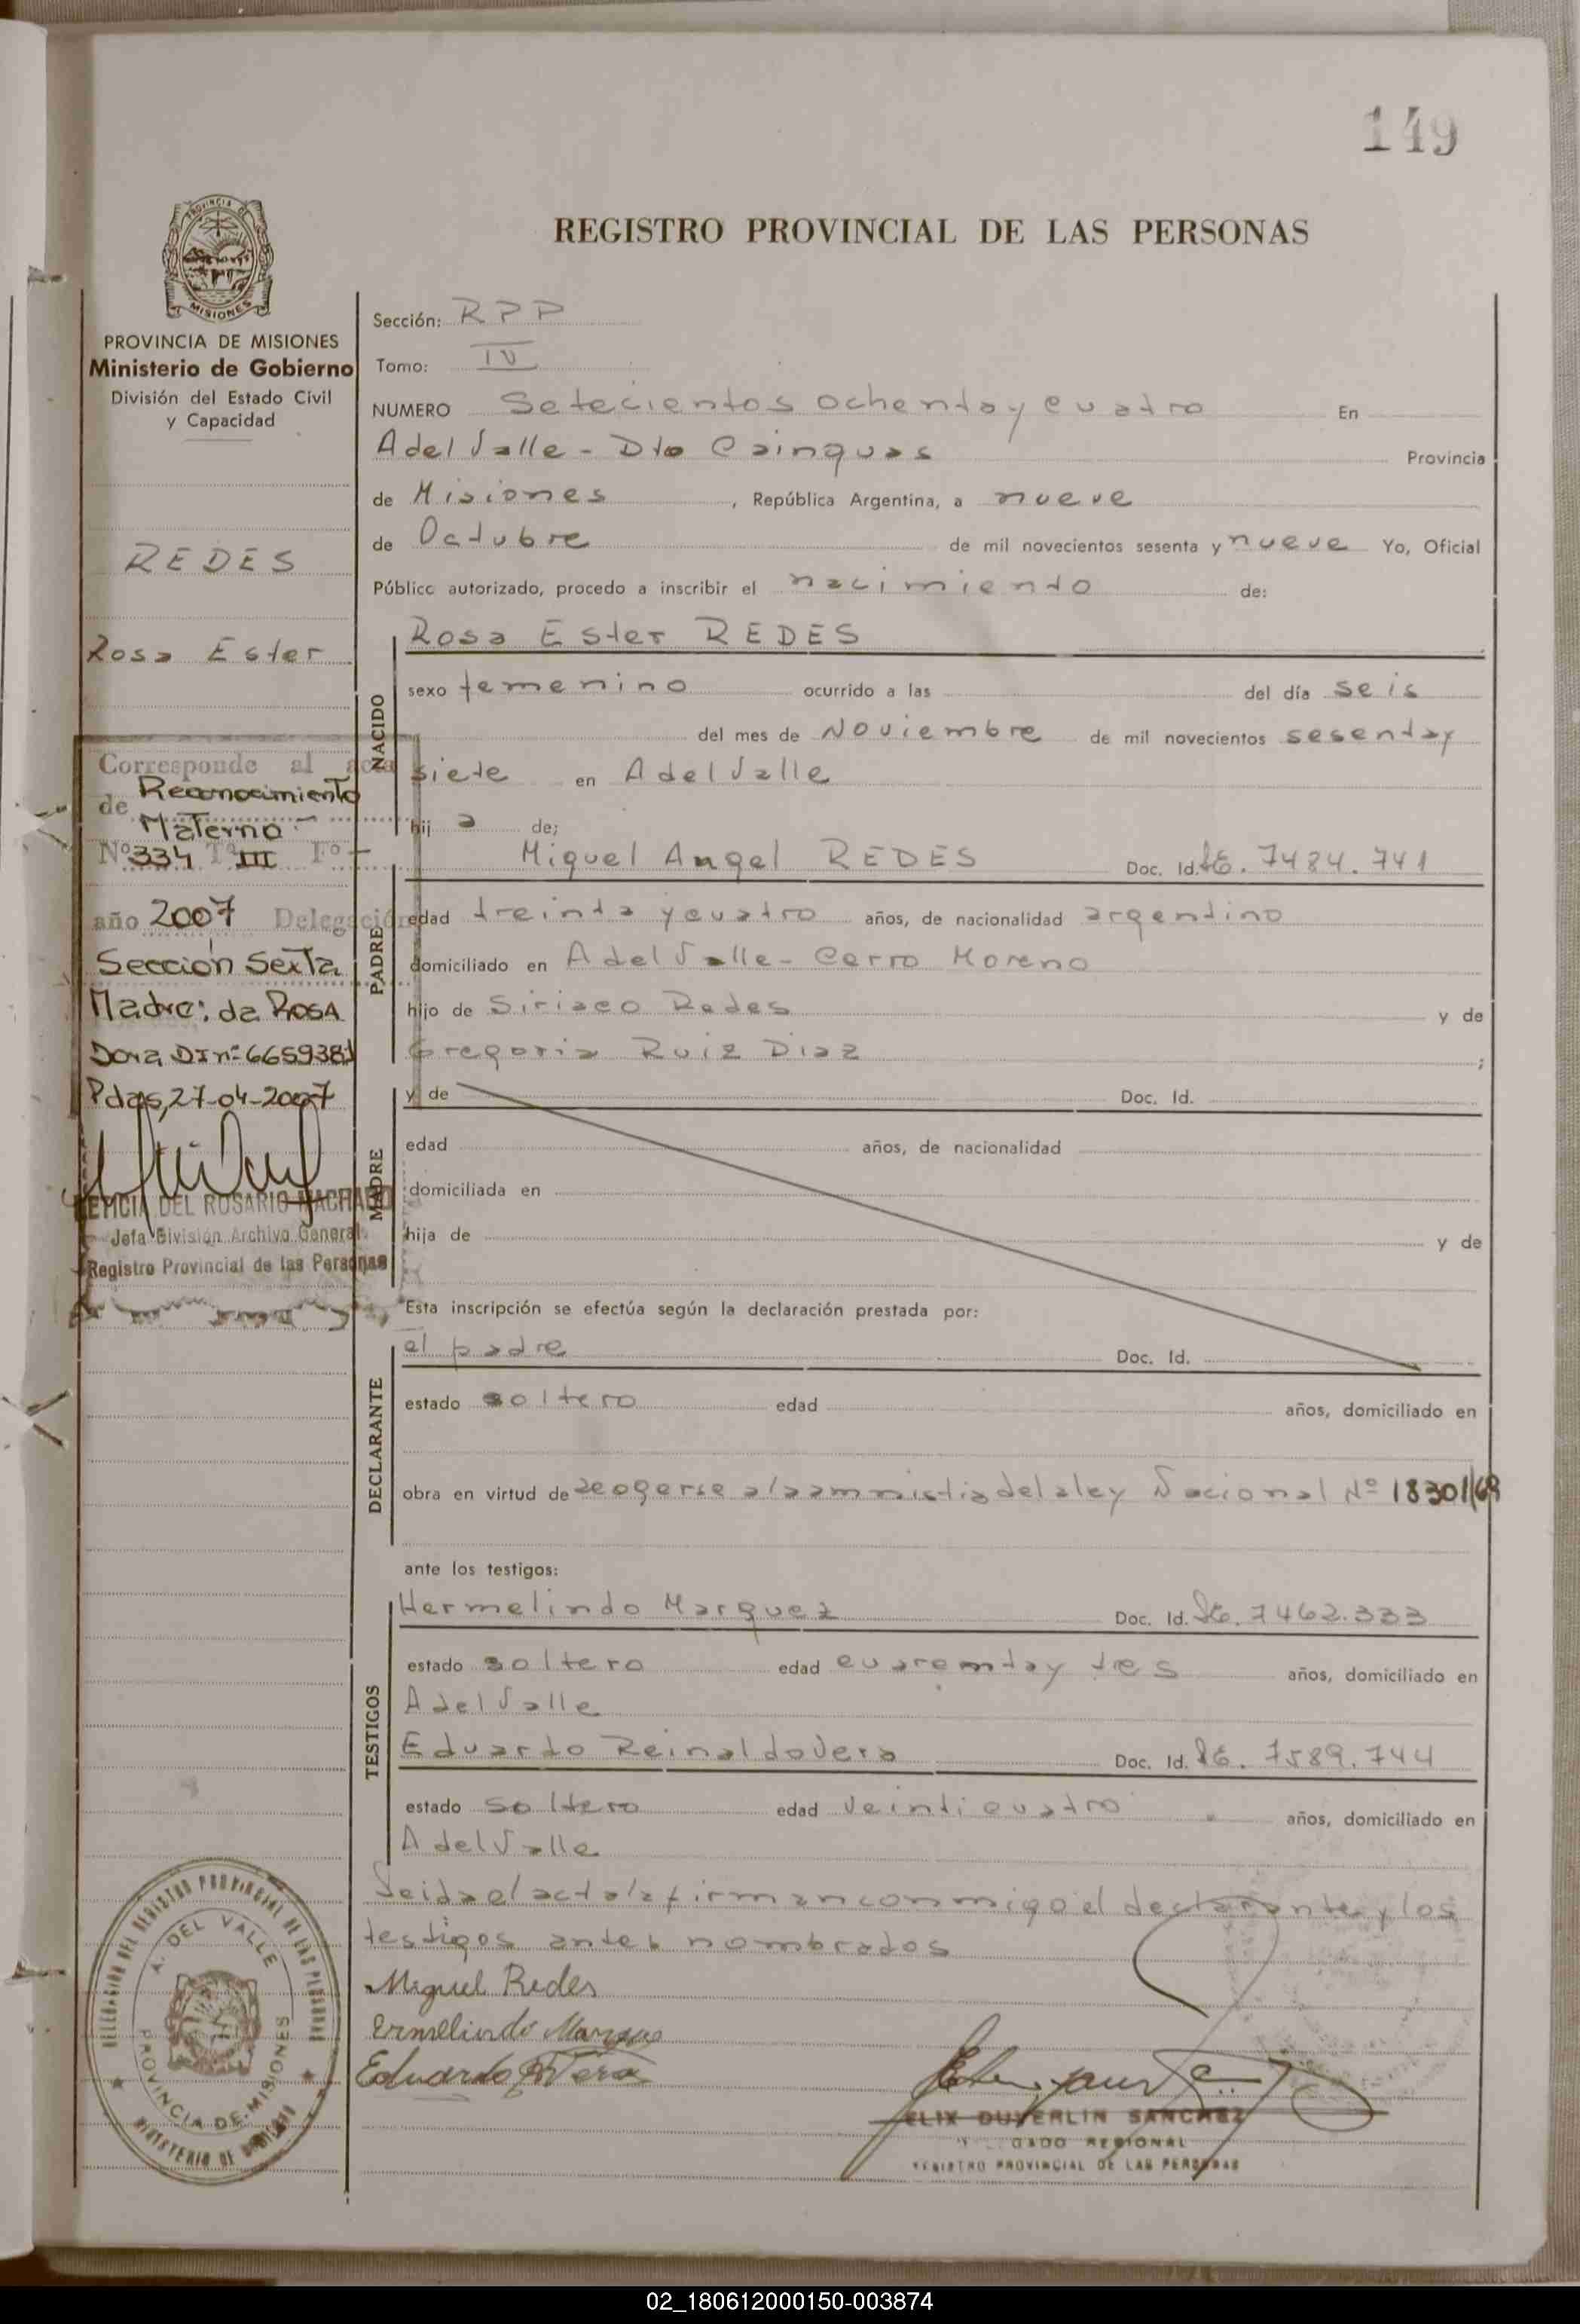 149
REGISTRO PROVINCIAL DE LAS PERSONAS
PROVINCIA DE MISIONES
Ministerio de Gobierno
División del Estado Civil
y Capacidad
REDES
Rosa Ester
Corresponde al acta
de Reconocimiento
Materno
Nº 334 Tº III Fº —
año 2007 Delegación
Sección Sexta
Madre: da ROSA
Dora DI nº 6659381
Pdas, 27-04-2007
LETICIA DEL ROSARIO MACHADO
Jefa División Archivo General
Registro Provincial de las Personas
Sección: RPP
Tomo: IV
NUMERO Setecientos ochenta y cuatro En
A del Valle - Dto Cainguas Provincia
de Misiones, República Argentina, a nueve
de Octubre de mil novecientos sesenta y nueve Yo, Oficial
Público autorizado, procedo a inscribir el nacimiento de:
NACIDO
Rosa Ester REDES
sexo femenino ocurrido a las del día seis
del mes de Noviembre de mil novecientos sesenta y
siete en A del Valle
hij a de;
PADRE
Miguel Angel REDES Doc. Id. LE. 7484.741
edad treinta y cuatro años, de nacionalidad argentino
domiciliado en A del Valle - Cerro Moreno
hijo de Siriaco Redes y de
Gregoria Ruiz Diaz ;
MADRE
y de Doc. Id.
edad años, de nacionalidad
domiciliada en
hija de y de
Esta inscripción se efectúa según la declaración prestada por:
DECLARANTE
el padre Doc. Id.
estado soltero edad años, domiciliado en
obra en virtud de acogerse a la amnistia de la ley Nacional Nº 18301/69
ante los testigos:
TESTIGOS
Hermelindo Marquez Doc. Id. LE. 7462.333
estado soltero edad cuarenta y tres años, domiciliado en
A del Valle
Eduardo Reinaldo Vera Doc. Id. LE. 7589.744
estado soltero edad veinticuatro años, domiciliado en
A del Valle
Leida el acta la firman conmigo el declarante y los
testigos antes nombrados
Miguel Redes
Ermelindo Marque
Eduardo R Vera
DELEGACION DEL REGISTRO PROVINCIAL DE LAS PERSONAS
A. DEL VALLE
PROVINCIA DE MISIONES
MINISTERIO DE GOBIERNO
FELIX DUVERLIN SANCHEZ
REGIONAL
REGISTRO PROVINCIAL DE LAS PERSONAS
02_180612000150-003874